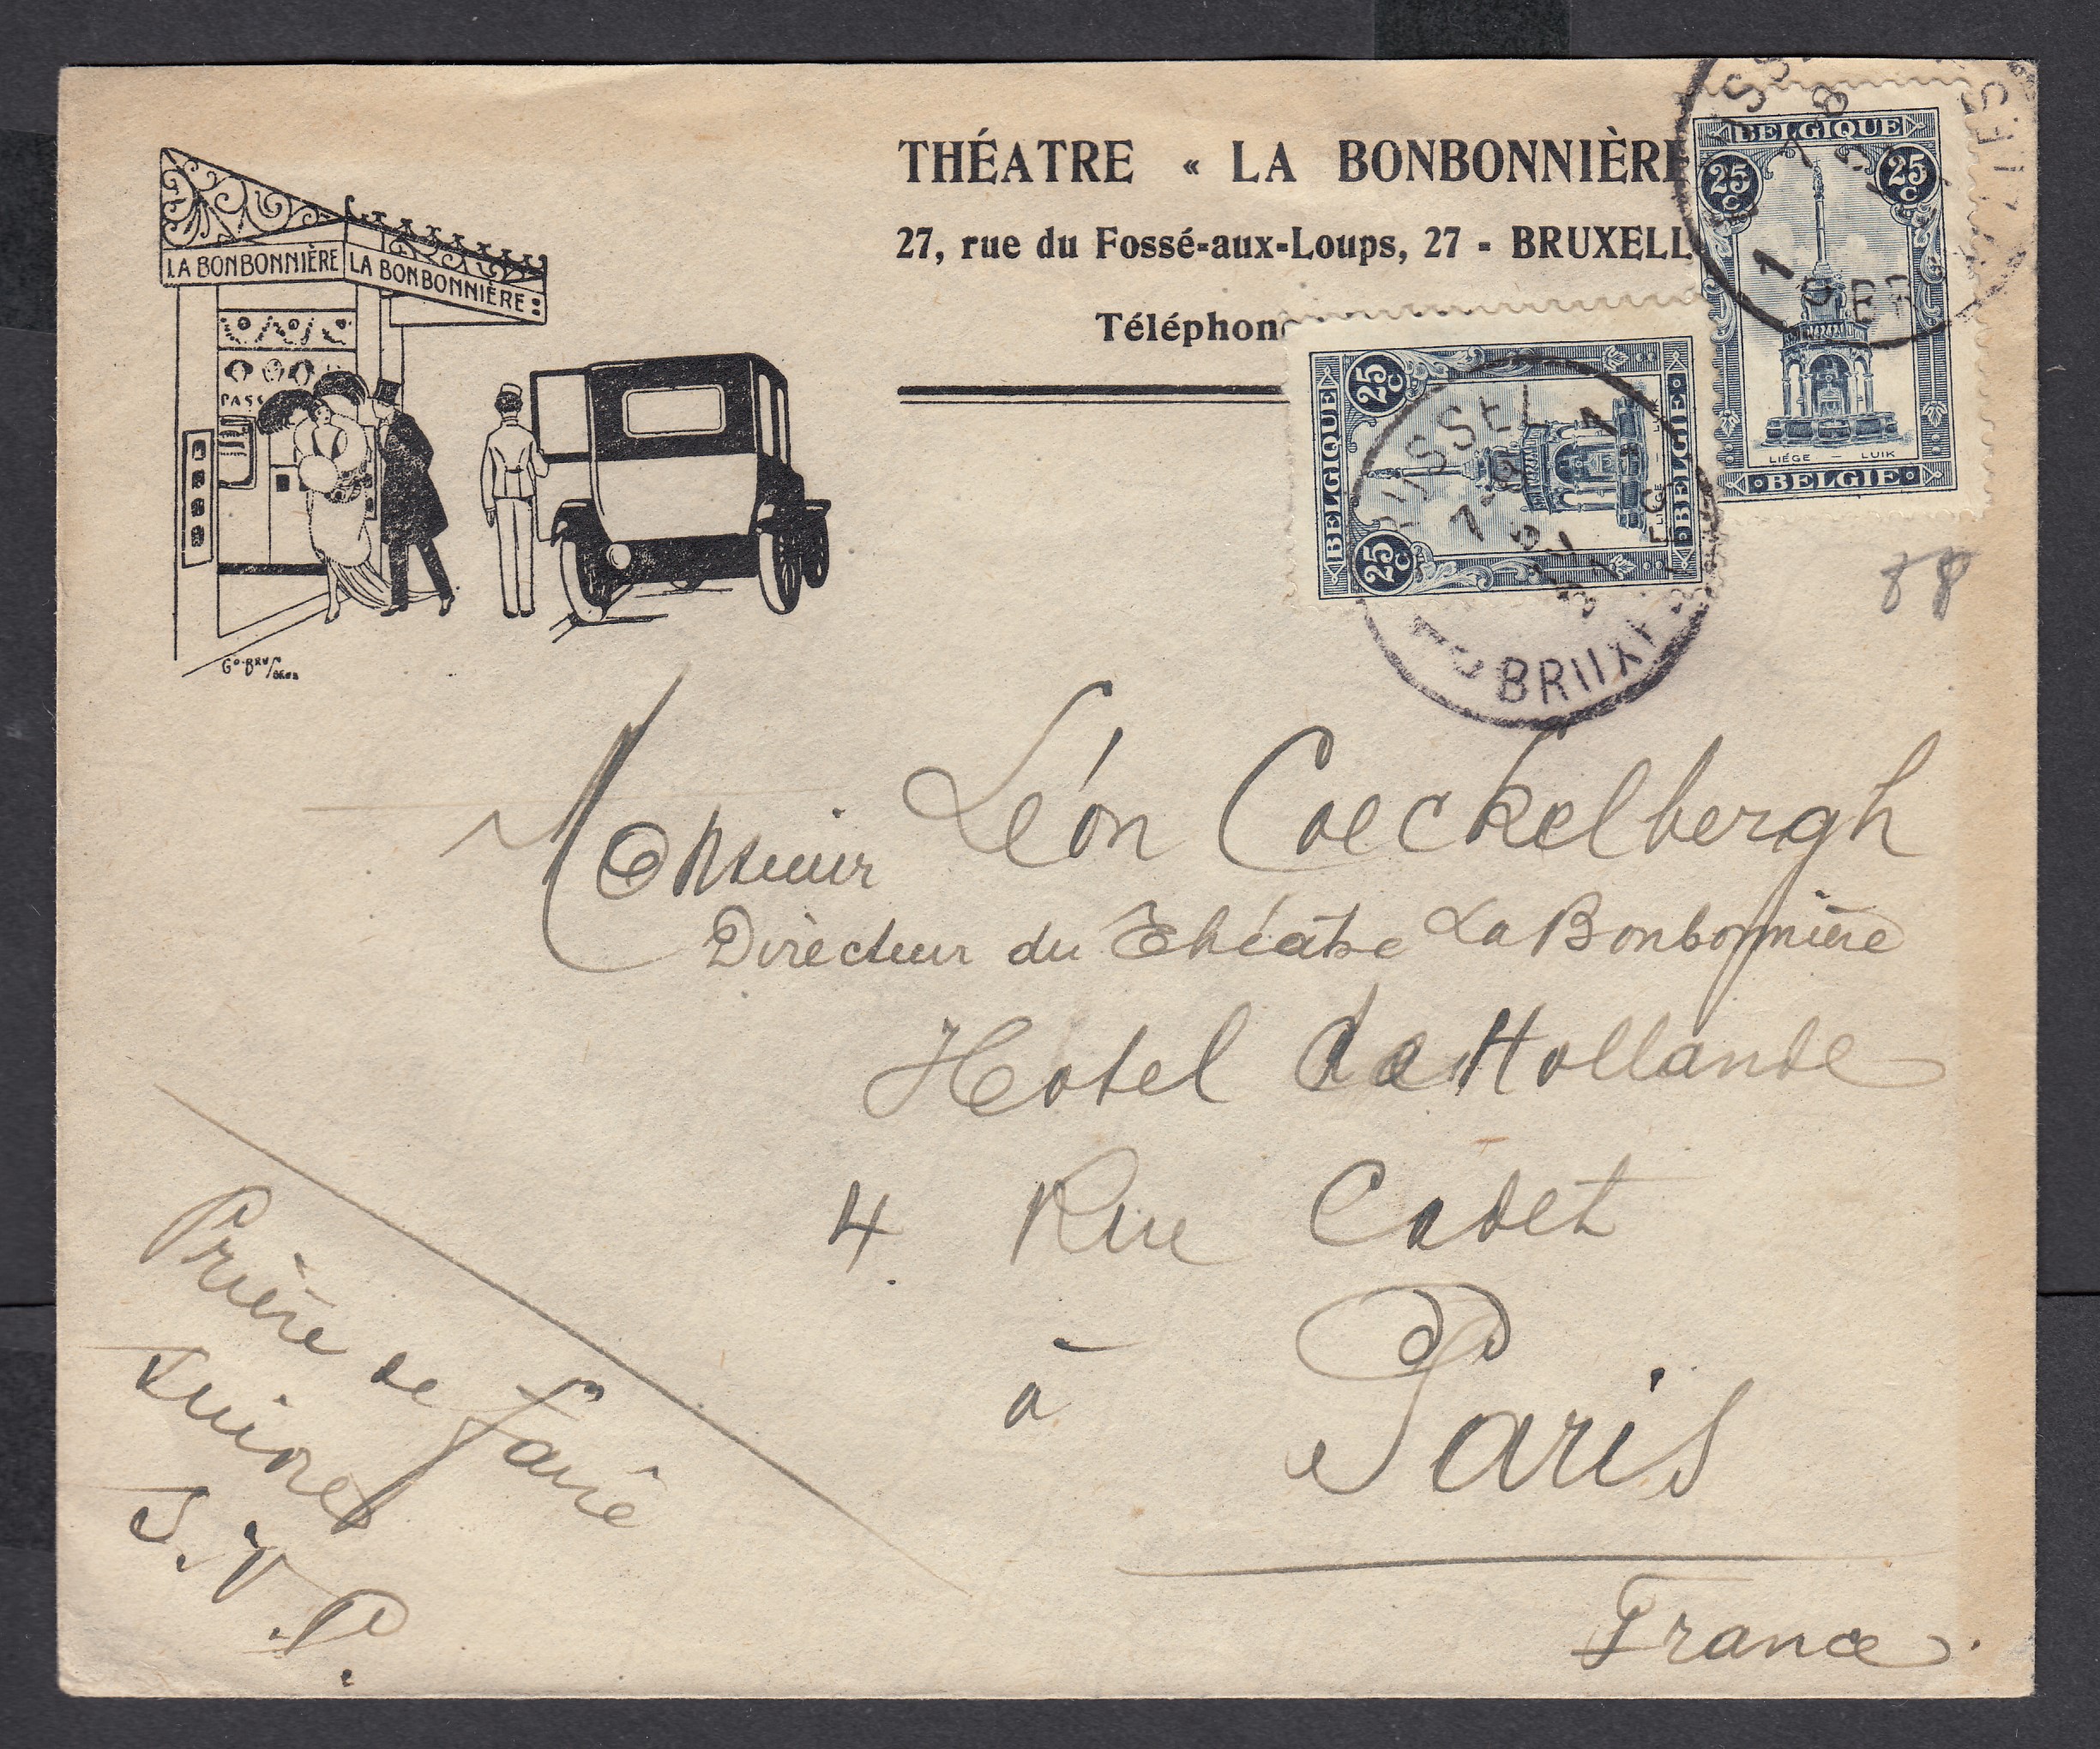 THÉATRE « LA BONBONNIÈRE
27, rue du Fossé-aux-Loups, 27 - BRUXELL
Téléphon
LA BONBONNIÈRE LA BONBONNIÈRE
PASS
BELGIQUE
25 C 25 C
LIÉGE — LUIK
BELGIE
BELGIQUE
25 C 25 C
LIÉGE — LUIK
BELGIE
BRUX
88
Monsieur Léon Coeckelbergh
Directeur du Théâtre La Bonbonnière
Hotel de Hollande
4. Rue Cadet
à Paris
France.
Prière de faire
suivre
S.V.P.